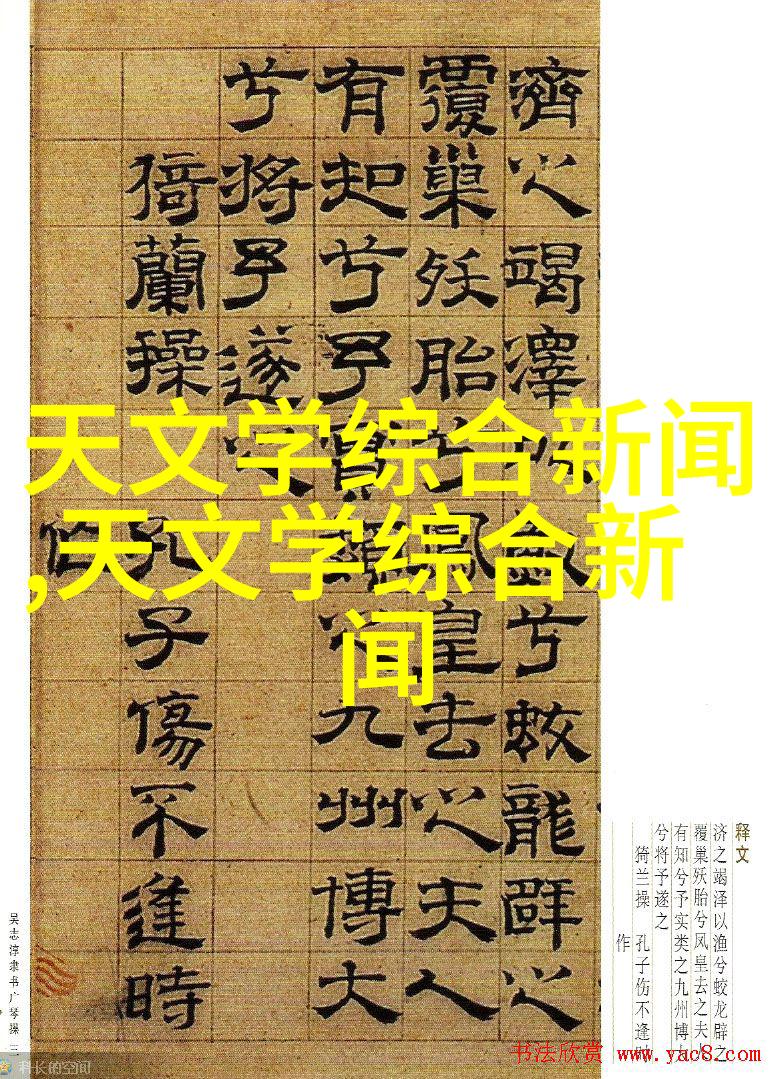 天文学综合新闻
,天文学综合新
闻
濟之竭澤兮蛟龍辟之
覆巢殀胎兮鳳皇去之夫人
有知兮予實類之九州博大
兮將予遂之
猗蘭操 孔子傷不逢時
作
释文
济之竭泽以渔兮蛟龙辟之
覆巢殀胎兮凤皇去之夫
有知兮予实类之九州博
兮将予遂之
猗兰操 孔子伤不逢
作
吴志淳隶书广琴操 三
科长的空间
书法欣赏 www.yac8.com